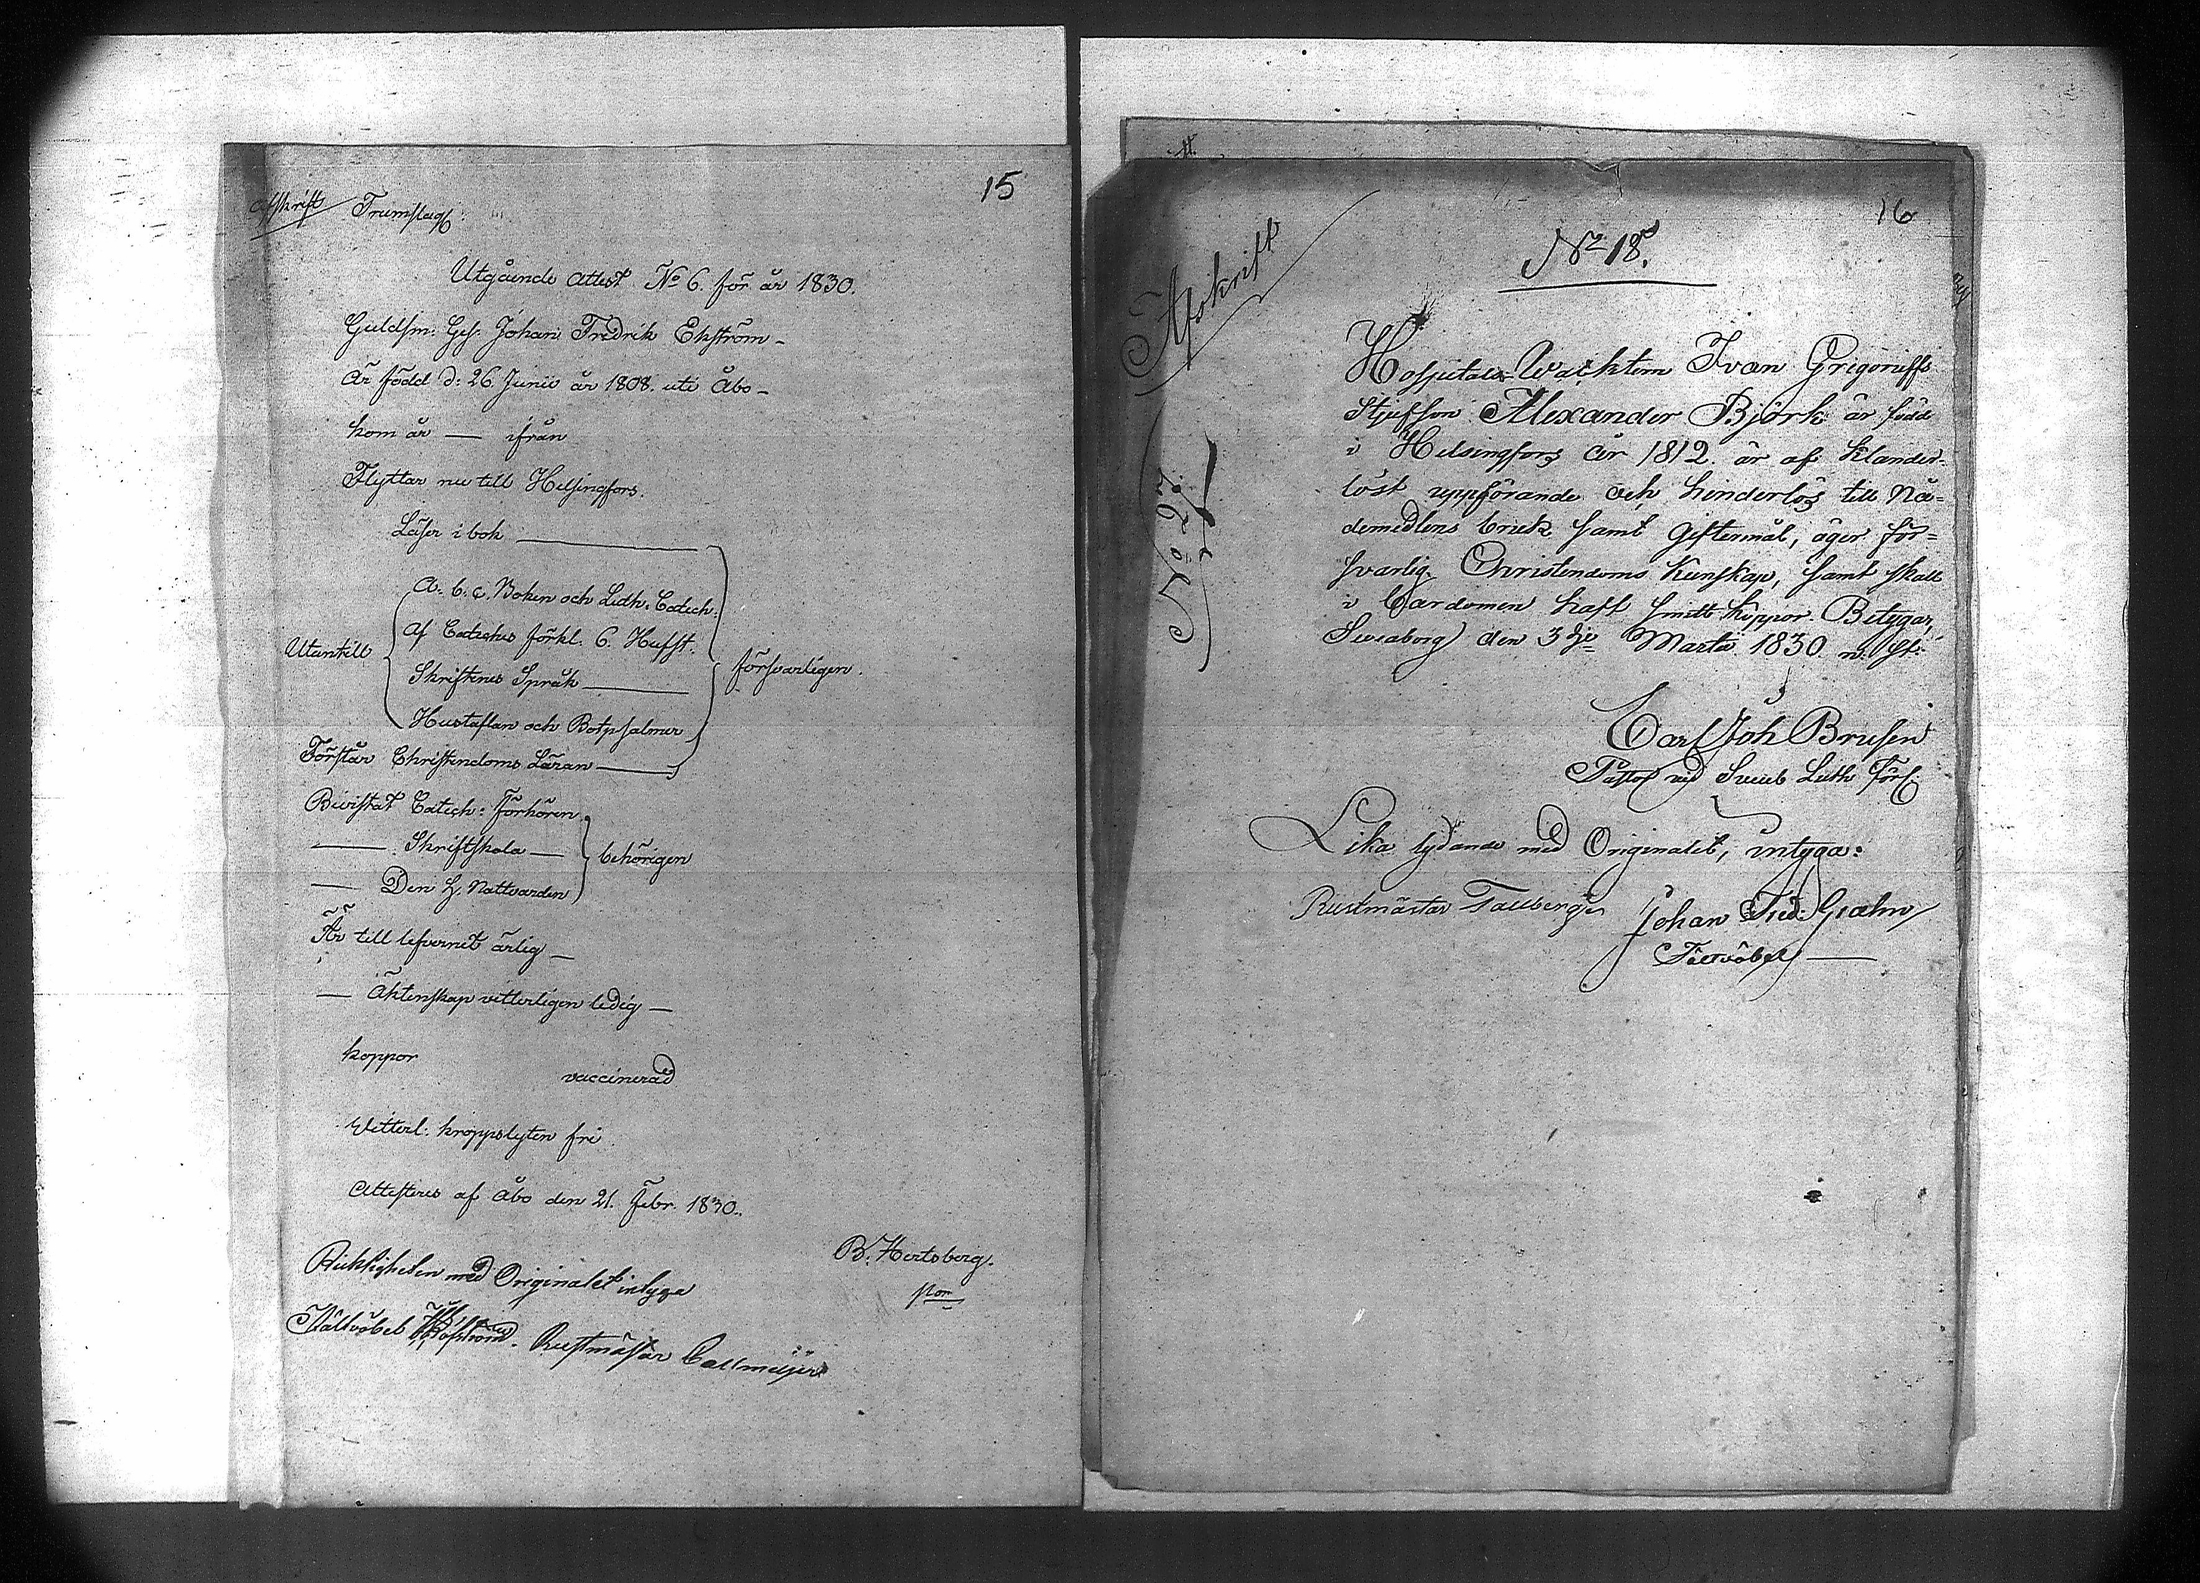 15
Afskrift Trumslag
Utgående attest No 6. för år 1830.
Guldsm: Ges. Johan Fredrik Ekström -
Är född d: 26 Junii år 1808 uti Åbo -
kom år — ifrån
Flyttar nu till Helsingfors.
Läser i bok
A. b. c. Boken och Luth. Catech:
Af Cateches förkl. 6. Hufst.
Utantill
Skriftenes Språk
försvarligen.
Hustaflan och Botpsalmer
Förstår Christendoms Läran
Bevistat Catech: Förhören
— Skriftskola — behörigen
— Den H. Nattvarden
Är till lefvernet ärlig —
— Äktenskap vitterligen ledig —
koppor
vaccinerad
Vitterl: kroppslyten fri
Attesteres af Åbo den 21. Febr. 1830.
B. Hertsberg.
Riktigheten med Originalet intyga
Fältväbel Rustmästar
16
No 18.
Afskrift
No 27.
Hospitals Wachtern Ivan Grigorieffs
Stjufson Alexander Björk är född
i Helsingfors år 1812. är af klander-
löst uppförande och hinderlös till Nå-
demedlens bruk samt giftermål, äger för-
svarlig Christendoms kunskap, samt skall
i barndomen haft smittkoppor. Betygar,
Sveaborg den 3dje Martii 1830. n. St.
Carl Joh Brusin
Pastor vid Sveab Luth Förs:
Lika lydande med Originalet, intyga:
Rustmästar Tallberg Johan Fred: Grahn
Fältväbel